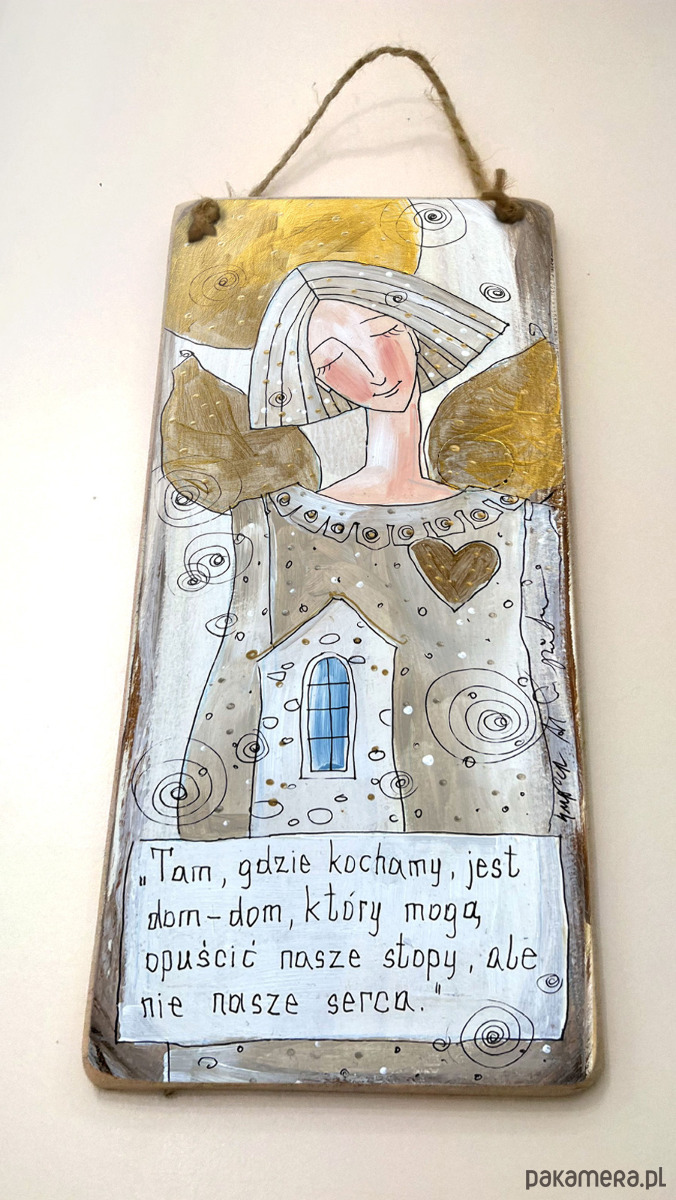 „Tam, gdzie kochamy, jest
dom-dom, który mogą
opuścić nasze stopy, ale
nie nasze serca."
pakamera.pl